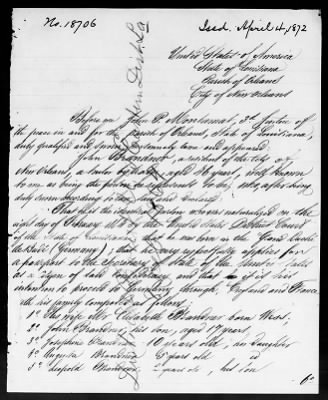 No. 18706
Issd. April 4, 1872
United States of America
State of Louisiana
Parish of Orleans
City of New Orleans
Before me John P. Montamat, 3d Justice of
the peace in and for the parish of Orleans, State of Louisiana,
duly qualified and sworn personally came and appeared
John Brandner, a resident of the City of
New Orleans, a tailor by trade, aged 36 years, well known
to me as being the person he represents to be, who, after being
duly sworn according to law
That he is the identical person who was naturalized on the
day of by the United States District Court
that he was born in the Grand Duché
de Bade (Germany); that he very respectfully applies for
a passport to the Secretary of State of the United States
as a citizen of said and that it is his
intention to proceed to Germany through England and France
with his family composed as follows:
1st His wife Mrs Elizabeth Brandner born West,
2d John Brandner, his son, aged 17 years,
3d Josephine Brandner 10 years old, his daughter
4th Augusta Brandner 5 years old id
5th Leopold Brandner 2 years old, his son